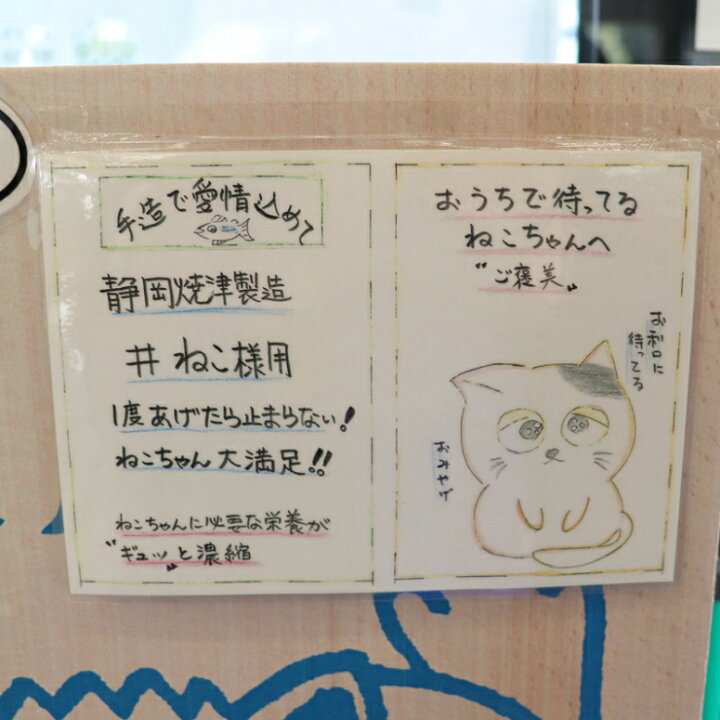 手造で愛情込めて
静岡焼津製造
#ねこ様用
1度あげたら止まらない!
ねこちゃん大満足!!
ねこちゃんに必要な栄養が
"ギュッ"と濃縮
おうちで待ってる
ねこちゃんへ
"ご褒美"
お利口に
待ってる
おみやげ